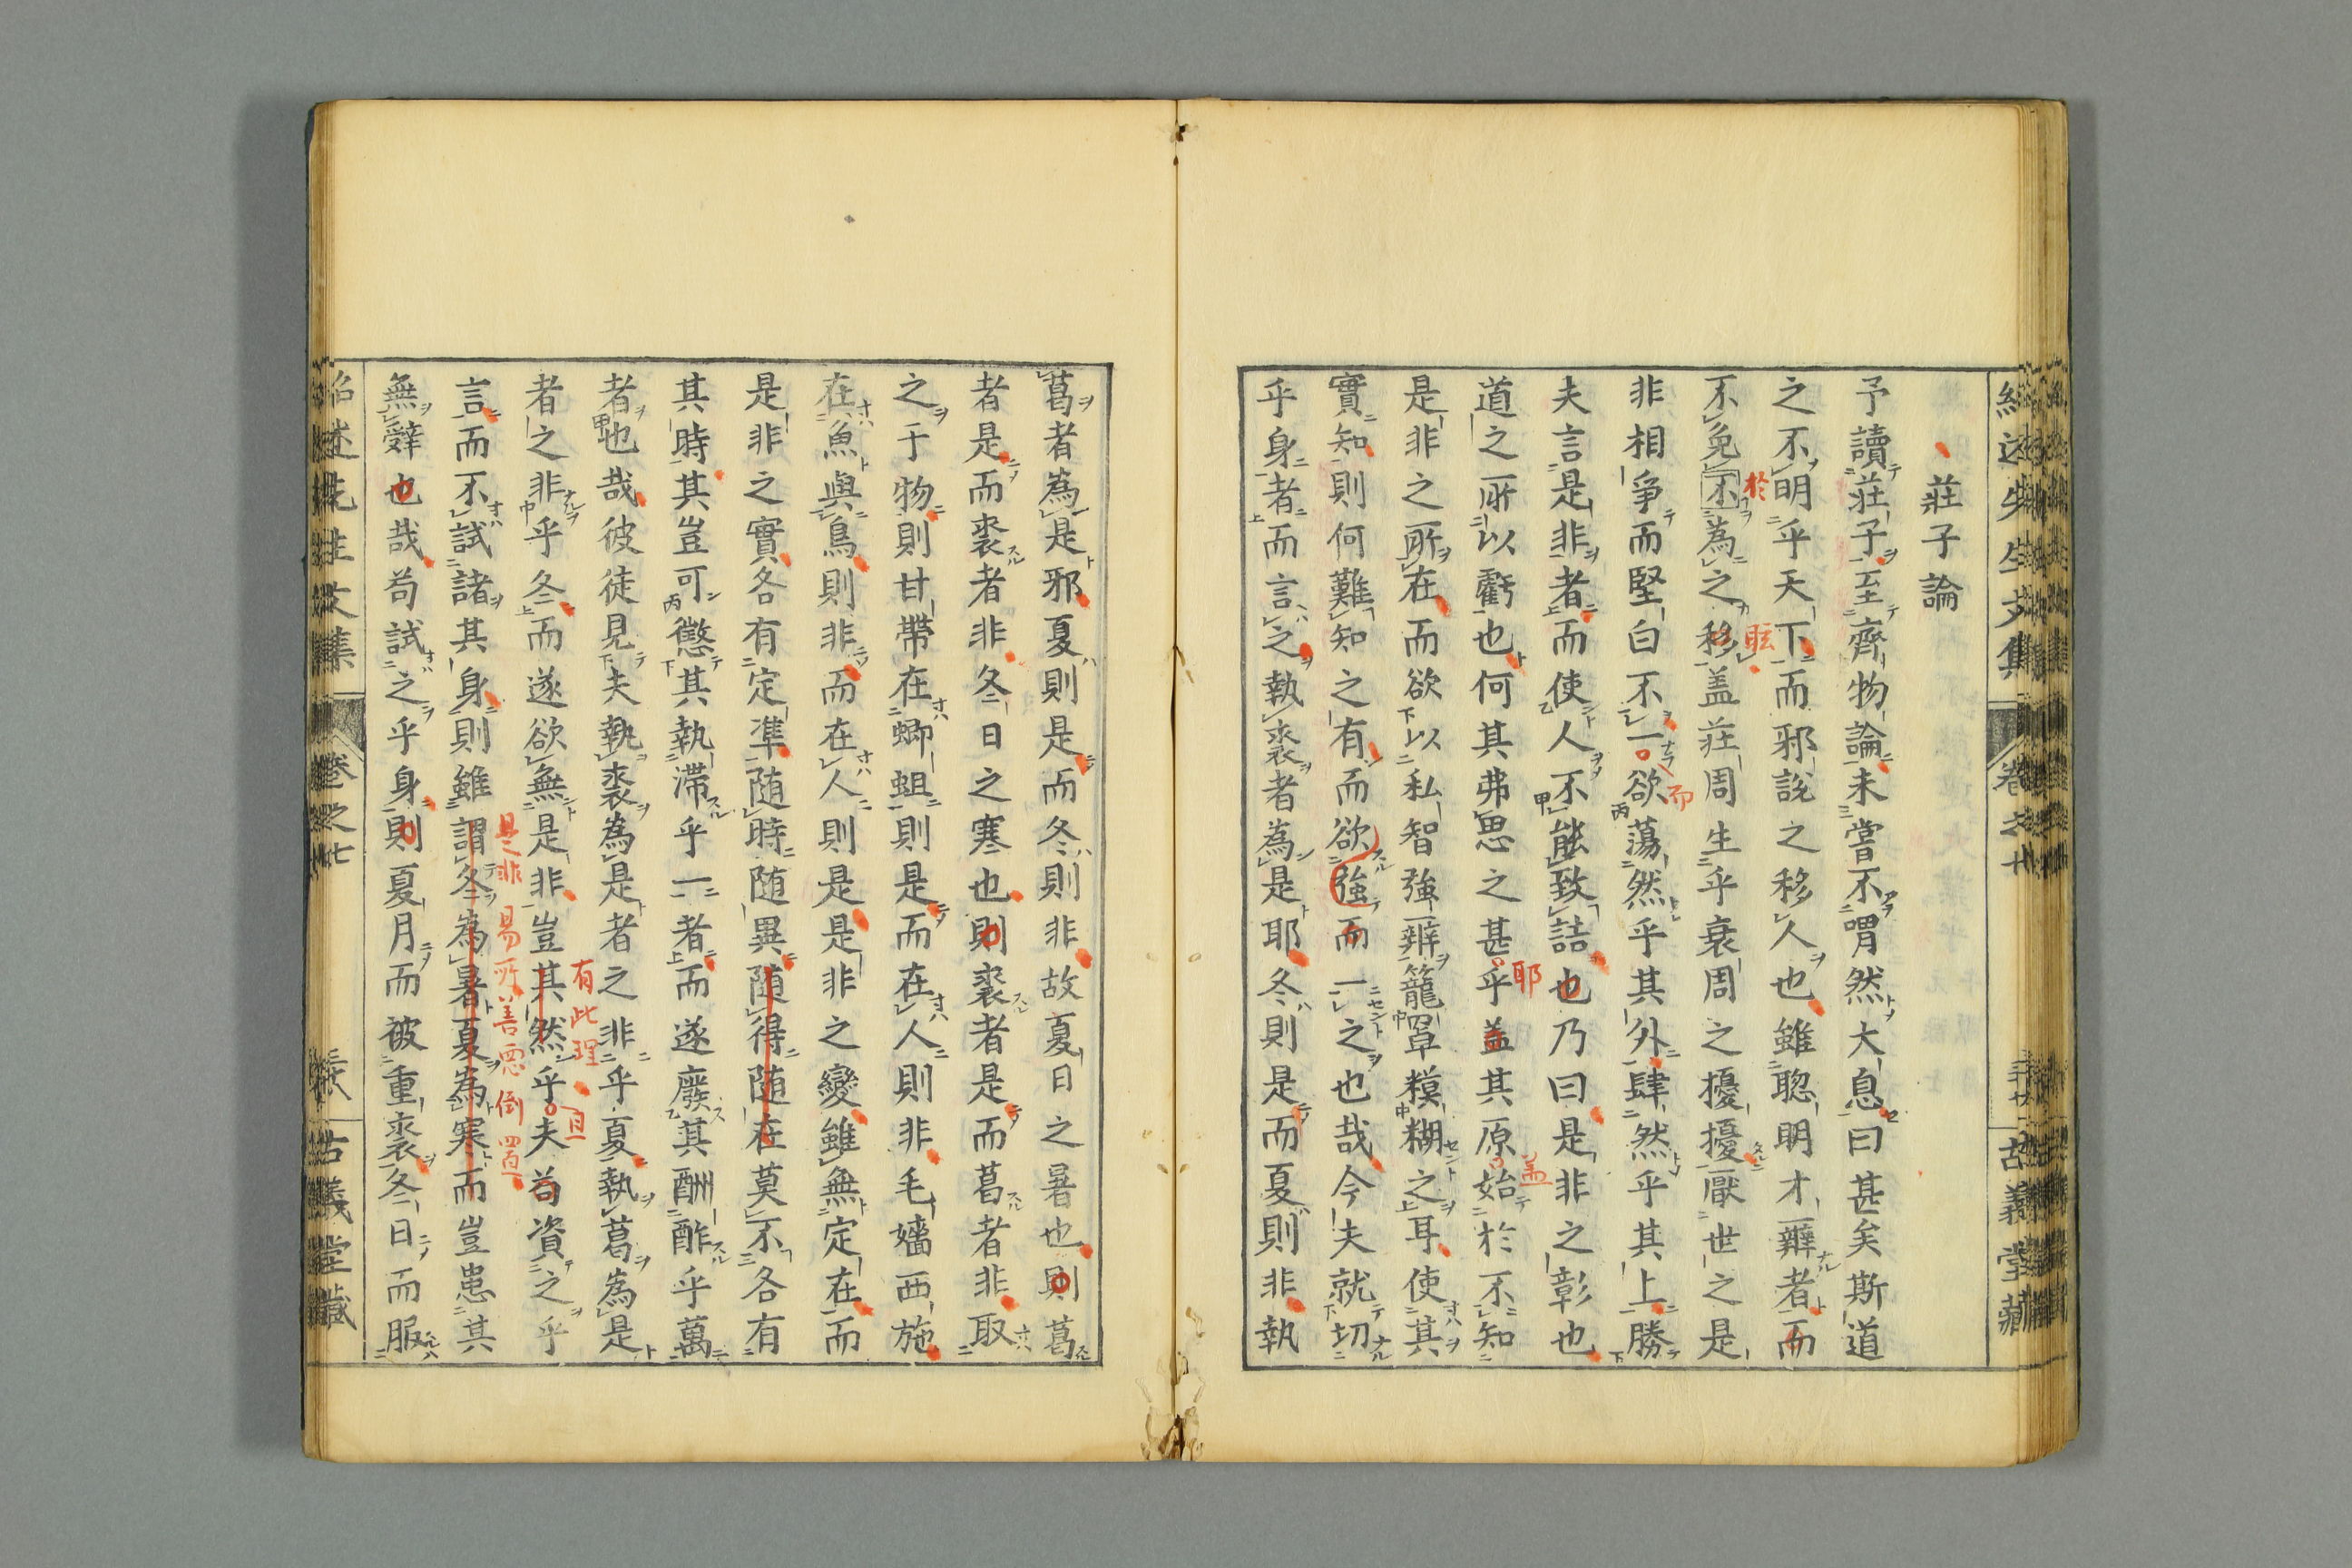 莊子論
予讀莊子至齊物論未嘗不喟然大息曰甚矣斯道
之不明乎天下而邪說之移人也雖聰明才辯者而
不免不為之移蓋莊周生乎衰周之擾擾厭世之是
於
眩
非相爭而堅白不一欲蕩然乎其外肆然乎其上勝
而
夫言是非者而使人不能致詰也乃曰是非之彰也
道之所以虧也何其弗思之甚乎盖其原始於不知
耶
盖
是非之所在而欲以私智強辯籠罩糢糊之耳使其
實知則何難知之有而欲強而一之也哉今夫就切
乎身者而言之執裘者為是耶冬則是而夏則非執
葛者為是邪夏則是而冬則非故夏日之暑也則葛
者是而裘者非冬日之寒也則裘者是而葛者非取
之于物則甘帶在蝍蛆則是而在人則非毛嬙西施
在魚與鳥則非而在人則是是非之變雖無定在而
是非之實各有定準随時随異随得随在莫不各有
其時其豈可懲其執滯乎一者而遂廢其酬酢乎萬
者也哉彼徒見夫執裘為是者之非乎夏執葛為是
者之非乎冬而遂欲無是非豈其然乎夫苟資之乎
有此理
且
言而不試諸其身則雖謂冬為暑夏為寒而豈患其
是非易所善惡倒置
無辭也哉苟試之乎身則夏月而被重裘冬日而服
紹述先生文集
卷之七
古義堂藏